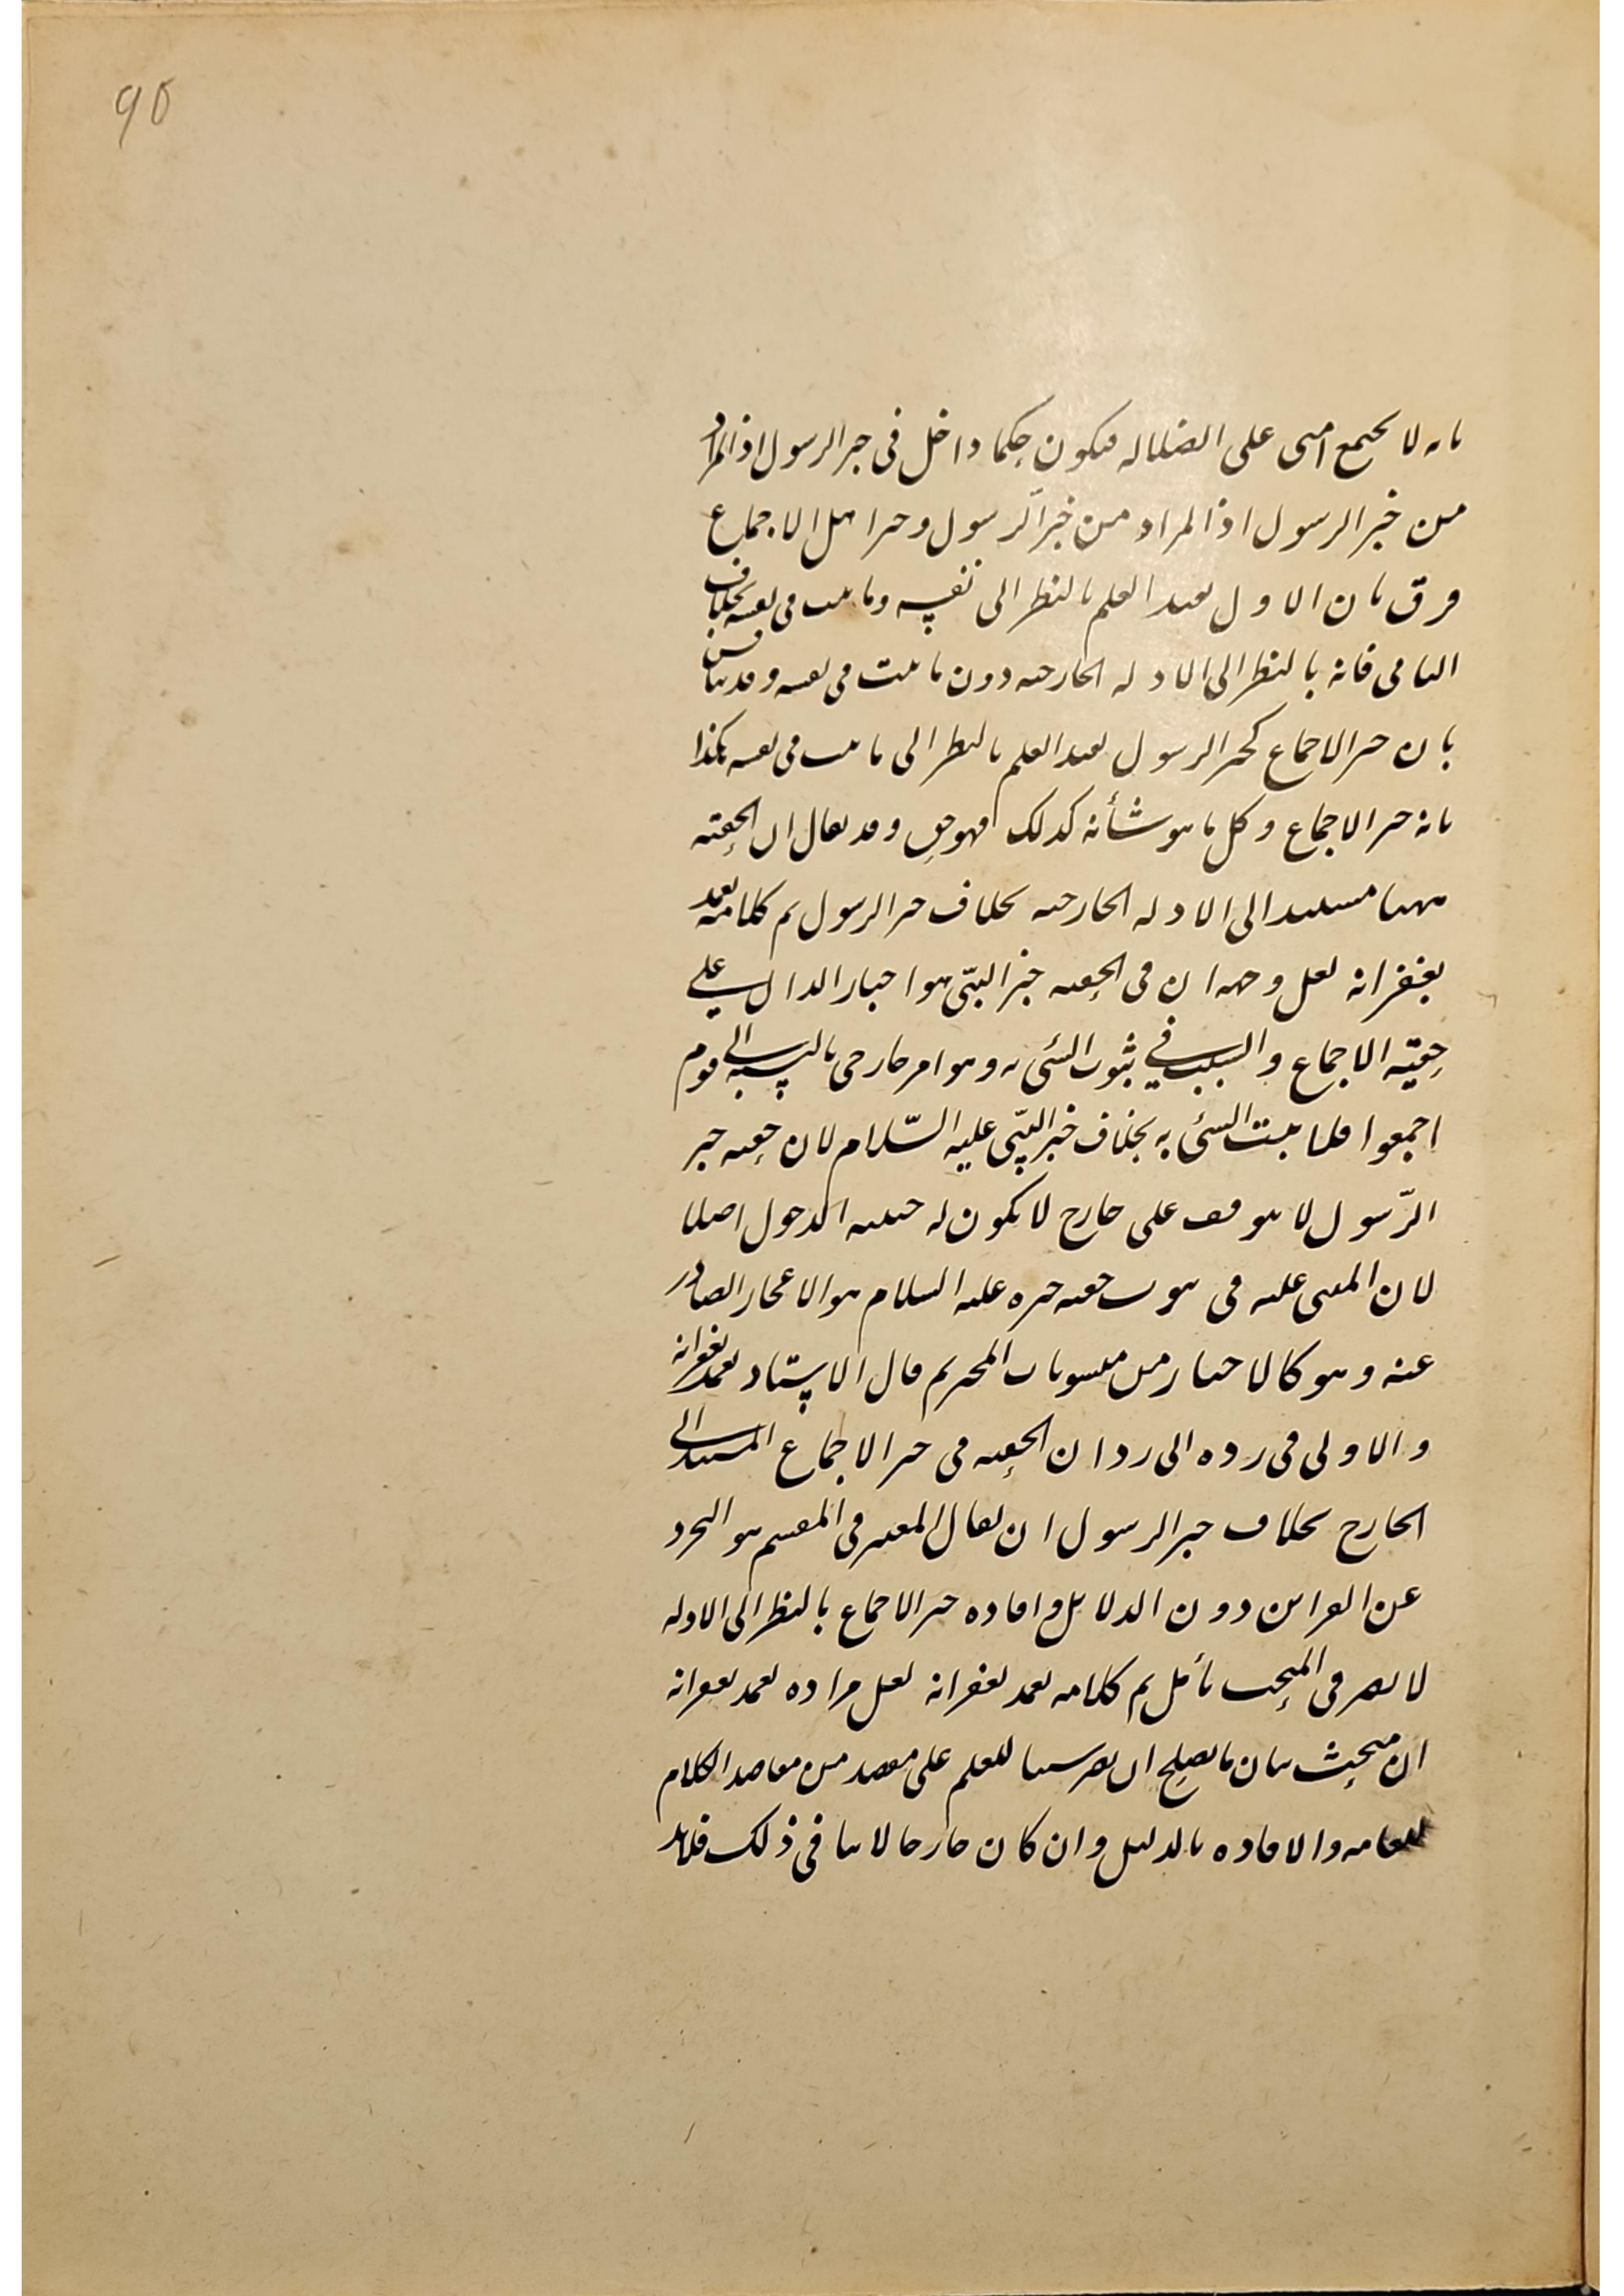 90
بانه لا يجتمع امتى على الضلالة فيكون حكما داخل فى خبر الرسول اذ المراد
من خبر الرسول اذ المراد من خبر الرسول وخبر اهل الاجماع
فرق بان الاول يفيد العلم بالنظر الى نفسه وما ثبت فى نفسه بخلاف
الثانى فانه بالنظر الى الادلة الخارجية دون ما ثبت فى نفسه وقد يناقش
بان خبر الاجماع كخبر الرسول يفيد العلم بالنظر الى ما ثبت فى نفسه هكذا
بانه خبر الاجماع وكل ما هو شأنه كذلك فهو حق وقد يقال ان الحقية
ههنا مستند الى الادلة الخارجية بخلاف خبر الرسول تم كلامه تغمد
بغفرانه لعل وجهه ان فى الحقية خبر النبى هو اخبار الدال على
حقية الاجماع والسبب فى ثبوت الشىء به وهو امر خارجى بالنسبة الى قوم
اجمعوا فلما ثبت الشىء به بخلاف خبر النبى عليه السلام لان حقية خبر
الرسول لا يتوقف على خارج لا يكون له حيثية الدخول اصلا
لان المبنى عليه فى ثبوت حقية خبره عليه السلام هو الاعجاز الصادر
عنه وهو كالاخبار من منسوبات المخبر تم قال الاستاد تغمد بغفرانه
والاولى فى رده الى رد ان الحقية فى خبر الاجماع المستند الى
الخارج بخلاف خبر الرسول ان يقال المعتبر فى المقسم هو التجرد
عن القرائن دون الدلايل وافادة خبر الاجماع بالنظر الى الادلة
لا يضر فى المبحث تأمل تم كلامه تغمد بغفرانه لعل مراده تغمد بغفرانه
ان مبحث بيان ما يصلح ان يصير سببا للعلم على مقصد من مقاصد الكلام
للعامة والافادة بالدليل وان كان خارجا لا ينافى ذلك فلابد